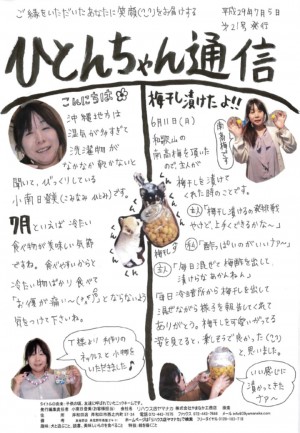 ご縁をいただいたあなたに笑顔(^▽^)をお届けする
平成29年7月5日
第21号 発行
ひとんちゃん通信
こんにちは
沖縄地方は
湿気がありすぎて
洗濯物が
なかなか乾かないと
聞いて、びっくりしている
小南日登美(こみなみ ひとみ)です。
7月といえば 冷たい
食べ物が美味しい気節
ですね。食べやすいからと
冷たい物ばかり食べて
「お腹が痛い~」とならないよう
気をつけて下さいね。
T様より 手作りの
ネックレスと小物を
いただきました♪
梅干し漬けたよ!!
6月11日(月)
和歌山の
南高梅を頂いた
ので、主人が
南高梅です
梅干しを漬けて
くれた時のことです。
主人「梅干し漬けるの初挑戦
やけど、上手くできるかな~」
私「酢っぱいのがいいナァ~」
主人「毎日混ぜて梅酢を出して、
漬けらなあかんねん」
毎日冷暗所から梅干しを出して
混ぜながら様子を報告してくれて
ありがとう。梅干しを可愛いがってる
姿を見てると、楽しそうで良かった(^▽^)
と思いました。
梅干し
いい感じに
漬かってきた
ナァ~